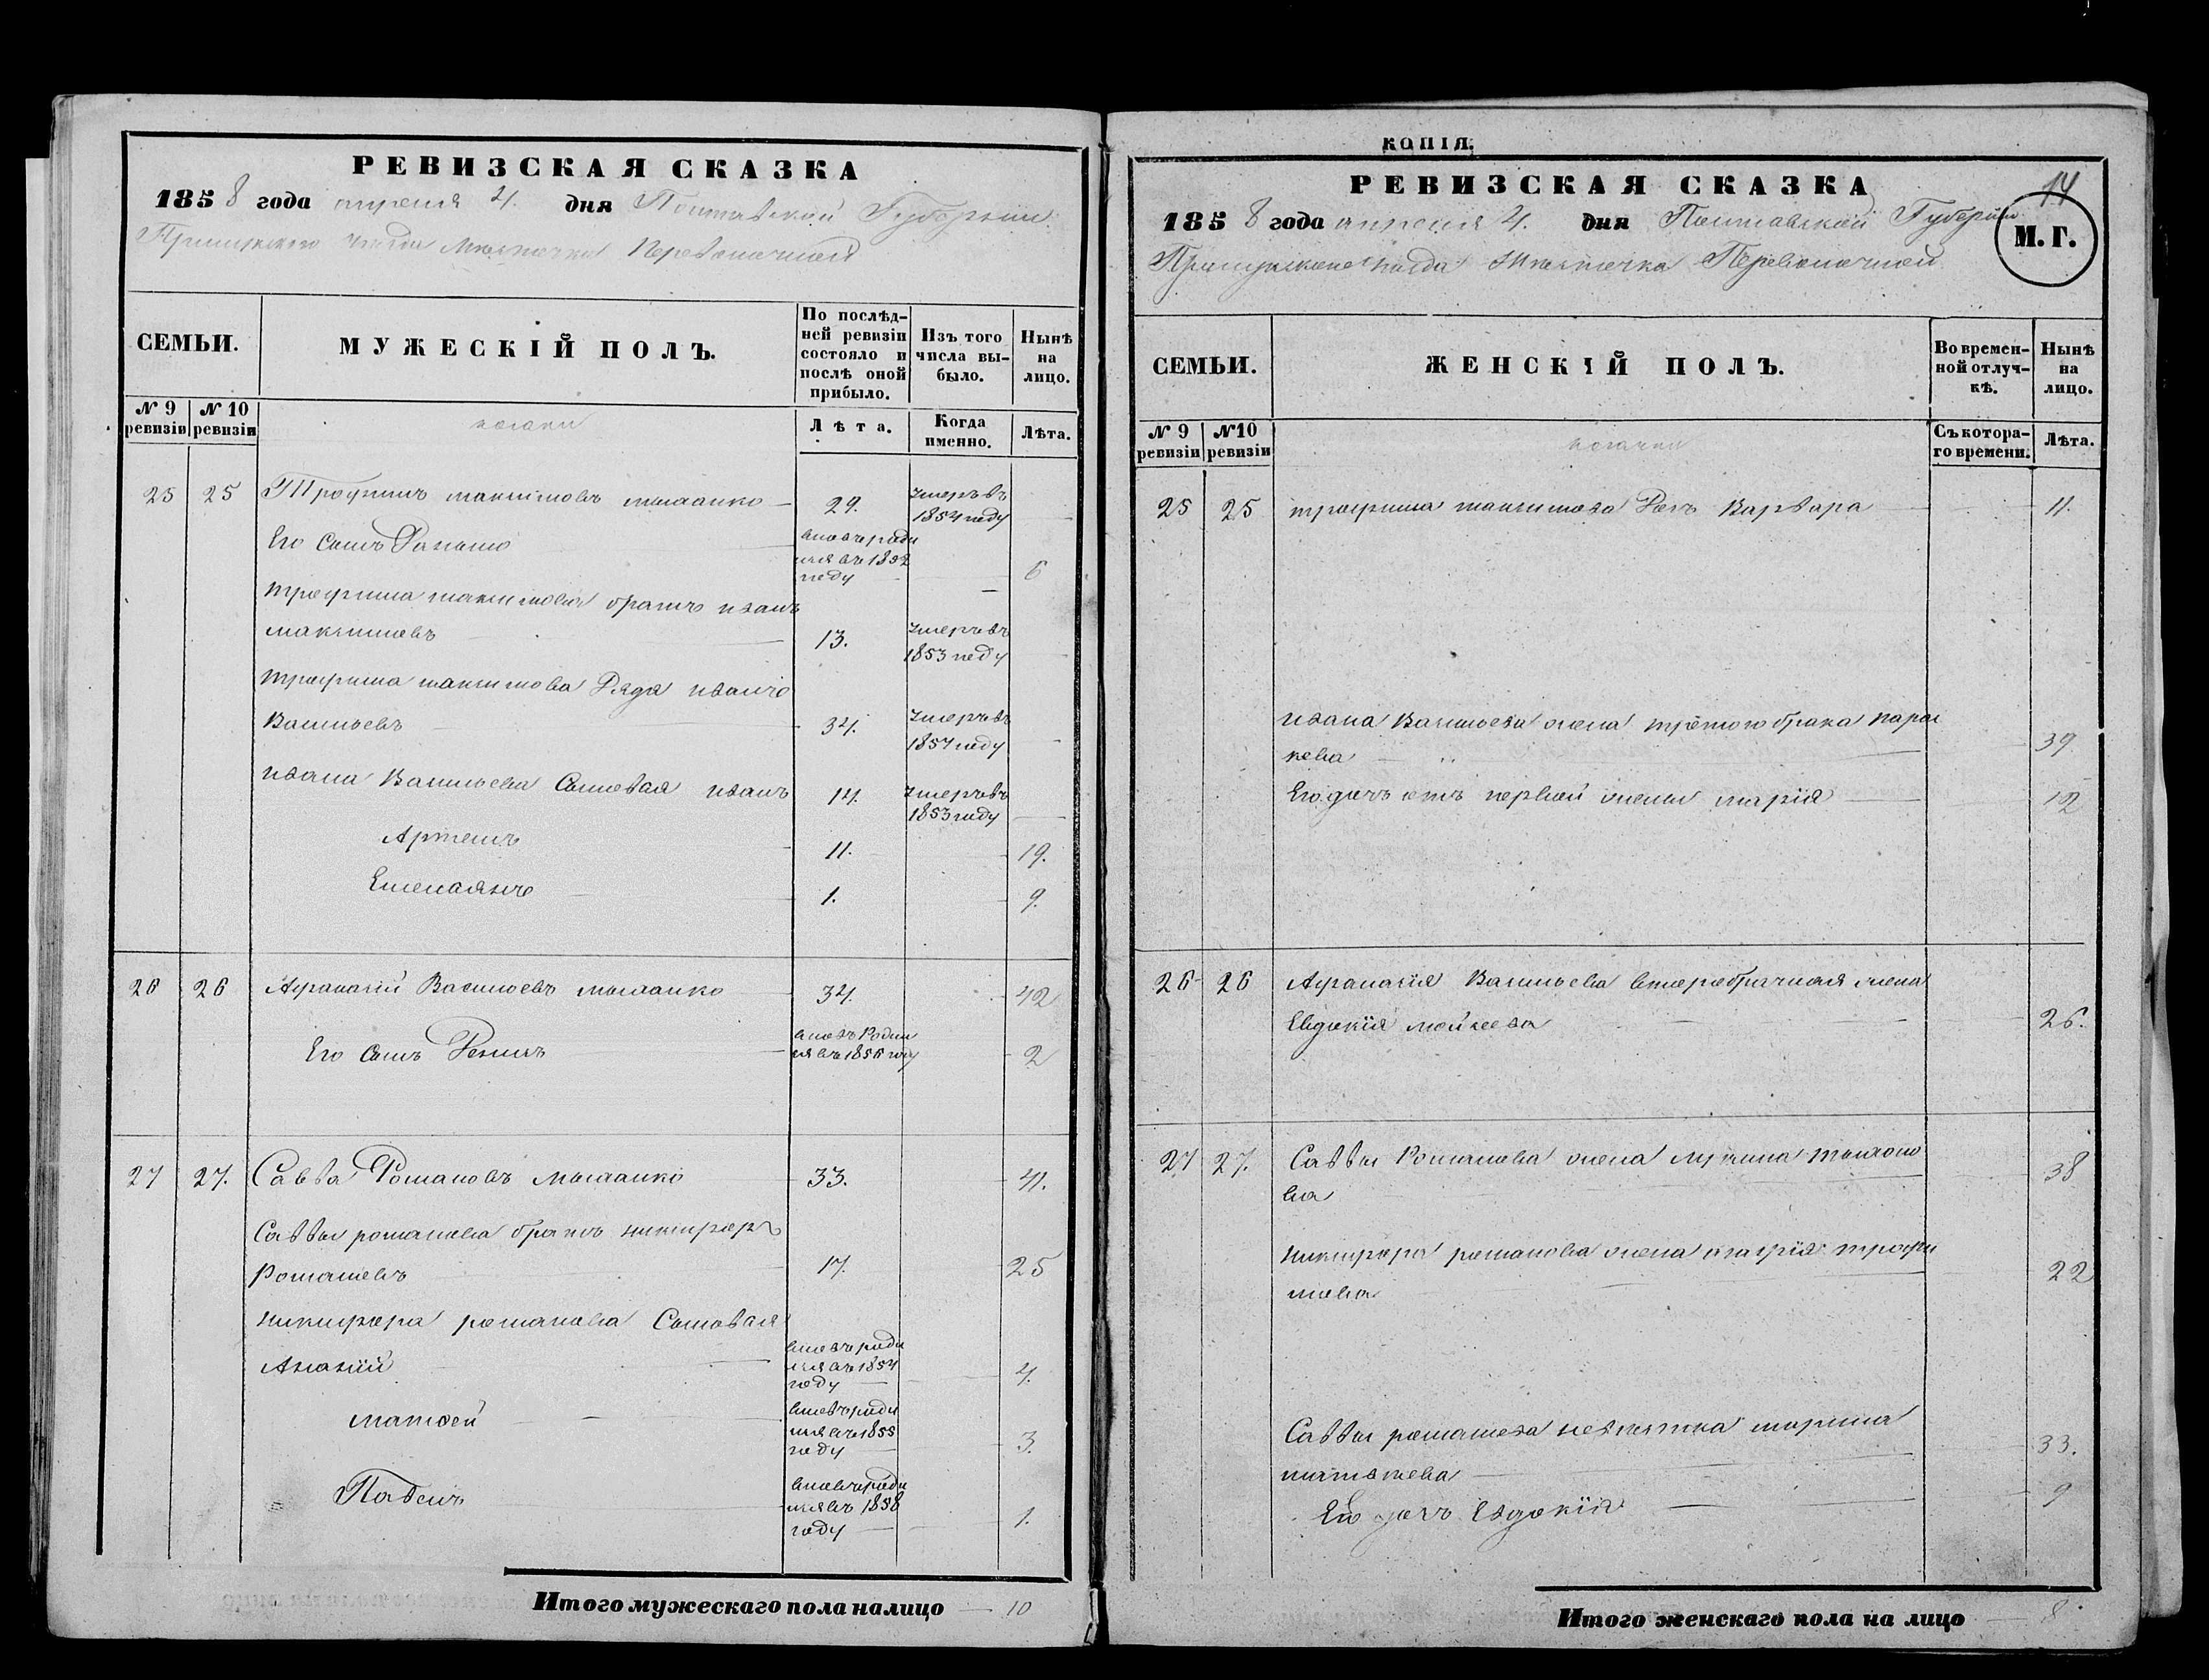 РЕВИЗСКАЯ СКАЗКА
1858 года апреля 4. дня Полтавской Губернии
Прилукского уезда Местечка Переволочной
СЕМЬИ.
МУЖЕСКІЙ ПОЛЪ.
По послѣд-
ней ревизіи
состояло и
послѣ оной
прибыло.
Изъ того
числа вы-
было.
Нынѣ
на
лицо.
№ 9
ревизіи
№ 10
ревизіи
козаки
Лѣта.
Когда
именно.
Лѣта.
25 25 Трофимъ максимовъ 29. умеръ въ
1854 году
Его Сынъ вновь роди
лся въ 1852
году 6
трофима максимова братъ иванъ
максимовъ 13. умеръ въ
1853 году
трофима максимова Дядя иванъ
Васильевъ 34. умеръ въ
1854 году
ивана Васильева Сыновья иванъ 14. умеръ въ
1853 году
Артемъ 11. 19.
Емельянъ 1. 9.
26 26 Афанасий Васильевъ 34. 42
Его Сынъ вновь Роди
лся въ 1856 году 2
27 27. Савва Романовъ 33. 41.
Саввы романова братъ никифоръ
Романовъ 17. 25
никифора романова Сыновья
Ананій вновь роди
лся въ 1854
году 4.
матвей вновь роди
лся въ 1855
году 3.
Павелъ вновь роди
лся въ 1858
году 1.
Итого мужескаго пола налицо 10
КОПІЯ.
РЕВИЗСКАЯ СКАЗКА
14
М. Г.
1858 года апреля 4. дня Полтавской Губернии
Прилукского уезда Местечка Переволочной
СЕМЬИ.
ЖЕНСКІЙ ПОЛЪ.
Во времен-
ной отлуч-
кѣ.
Нынѣ
на
лицо.
№ 9
ревизіи
№10
ревизіи
козачки
Съ котора-
го времени.
Лѣта.
25 25 трофима максимова Дочь Варвара 11.
ивана Васильева жена третого брака парас
кева 39
Его дочь отъ первой жены марія 12
26 26 Афанасія Васильева второбрачная жена
Евдокія мойсеева 26.
27 27. Саввы Романова жена 38
никифора романова жена трофи
мова 22
Саввы романова невестка марина
матвеева 33.
Ея дочь Евдокія 9
Итого женскаго пола на лицо 8